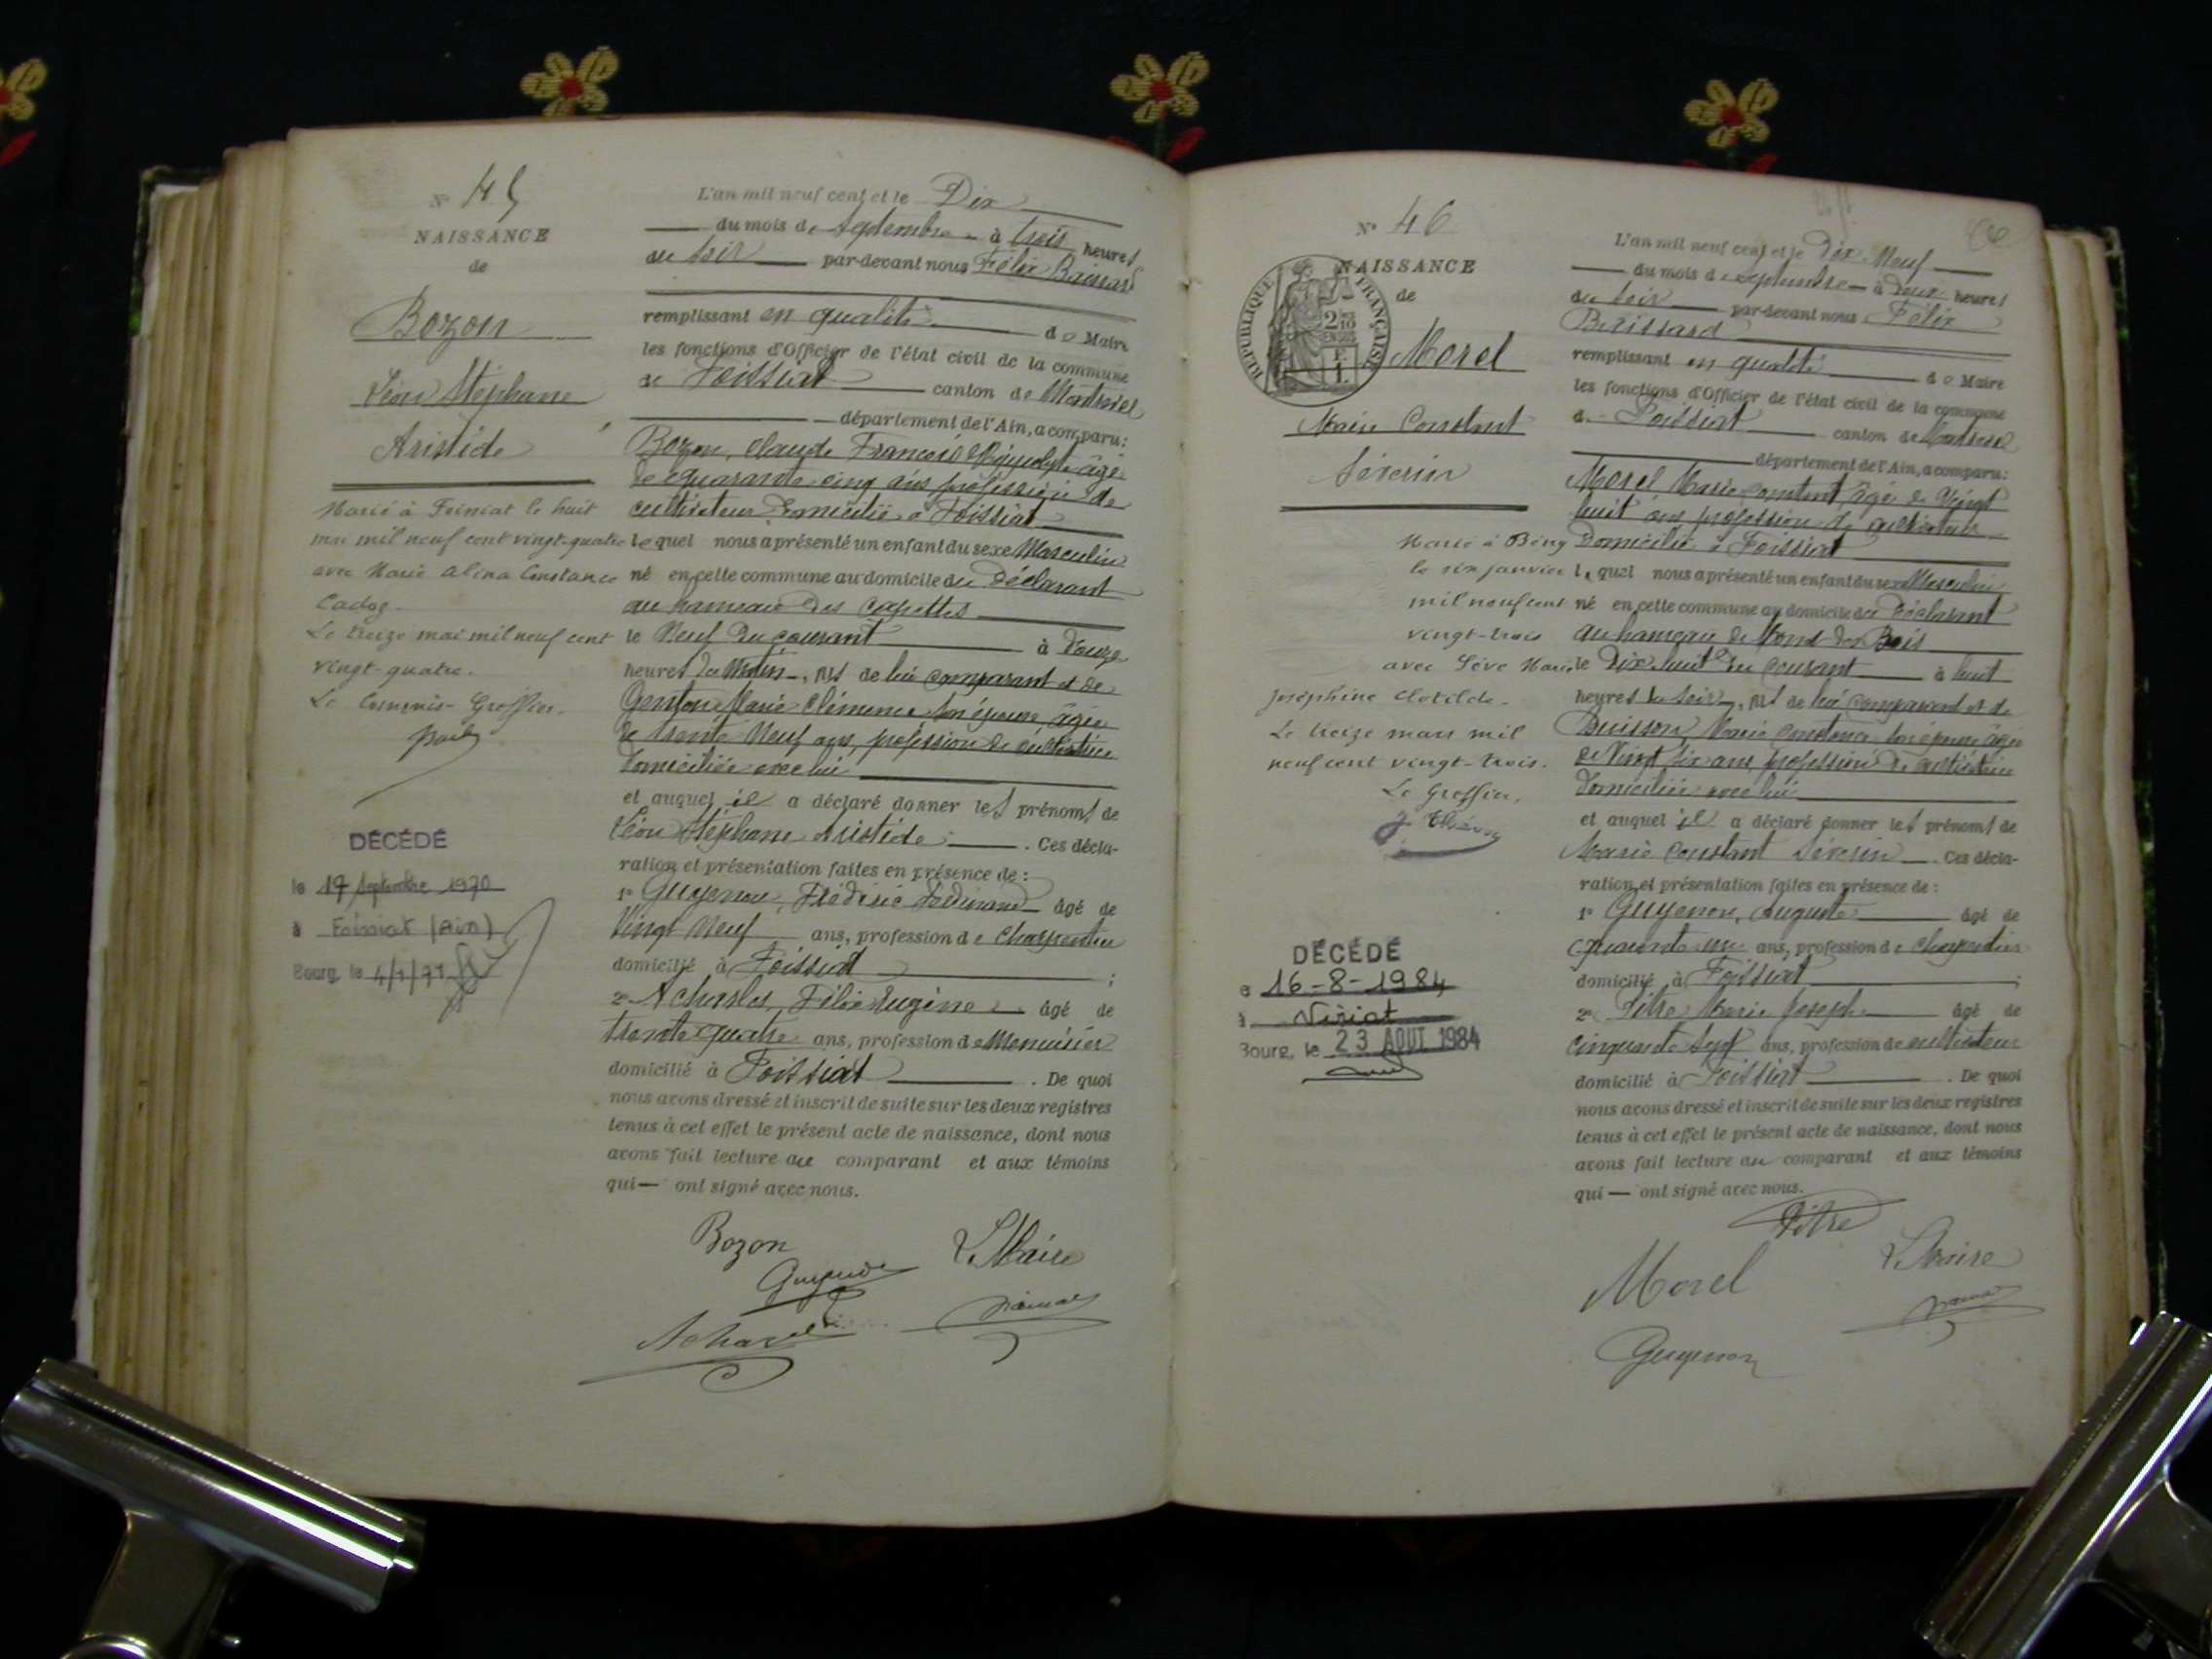 N° 45
NAISSANCE
de
Bozon
Léon Stéphane
Aristide
Marié à Foissiat le huit
mai mil neuf cent vingt-quatre
avec Marie Alina Constance
Cadoz.
Le treize mai mil neuf cent
vingt-quatre.
Le Commis-Greffier.
DÉCÉDÉ
le 17 Septembre 1970
à Foissiat (Ain)
Bourg, le 4/1/71
L'an mil neuf cent et le Dix
du mois de Septembre à trois heures
du soir par-devant nous Félix Baissard
remplissant en qualité de Maire
les fonctions d'Officier de l'état civil de la commune
de Foissiat canton de Montrevel
département de l'Ain, a comparu:
Bozon, Claude François Hippolyte âgé
de quarante cinq ans profession de
cultivateur domicilié à Foissiat
lequel nous a présenté un enfant du sexe Masculin
né en cette commune au domicile du Déclarant
au hameau des Capettes
le Neuf du courant à Douze
heures du Matin, fils de lui comparant et de
Marie Clémence son épouse âgée
de trente Neuf ans, profession de cultivatrice
domiciliée avec lui
et auquel il a déclaré donner les prénoms de
Léon Stéphane Aristide. Ces décla-
ration et présentation faites en présence de:
1° Guyenon, Frédéric Ferdinand âgé de
Vingt Neuf ans, profession de Charpentier
domicilié à Foissiat;
2° Acharles, Félix Eugène âgé de
trente quatre ans, profession de Menuisier
domicilié à Foissiat. De quoi
nous avons dressé et inscrit de suite sur les deux registres
tenus à cet effet le présent acte de naissance, dont nous
avons fait lecture au comparant et aux témoins
qui — ont signé avec nous.
Bozon
Le Maire
N° 46
NAISSANCE
de
RÉPUBLIQUE FRANÇAISE
Morel
Marie Constant
Séverin
Marié à Bény
le six janvier
mil neuf cent
vingt-trois
avec Sève Marie
Joséphine Clotilde.
Le treize mars mil
neuf cent vingt-trois.
Le Greffier,
DÉCÉDÉ
le 16-8-1984
à Viriat
Bourg, le 23 AOUT 1984
L'an mil neuf cent et le Dix Neuf
du mois de Septembre à Deux heures
du soir par-devant nous Félix
Baissard
remplissant en qualité de Maire
les fonctions d'Officier de l'état civil de la commune
de Foissiat canton de Montrevel
département de l'Ain, a comparu:
Morel Marie Constant âgé de Vingt
huit ans profession de cultivateur
Domicilié à Foissiat
lequel nous a présenté un enfant du sexe Masculin
né en cette commune au domicile du Déclarant
au hameau de Fond des Bois
le Dix huit du courant à huit
heures du soir, fils de lui comparant et de
Buisson Marie Constance son épouse âgée
de Vingt six ans, profession de cultivatrice
domiciliée avec lui
et auquel il a déclaré donner les prénoms de
Marie Constant Séverin. Ces décla-
ration et présentation faites en présence de:
1° Guyenon, Auguste âgé de
quarante un ans, profession de Charpentier
domicilié à Foissiat;
2° Pitre Marie Joseph âgé de
cinquante Sept ans, profession de cultivateur
domicilié à Foissiat. De quoi
nous avons dressé et inscrit de suite sur les deux registres
tenus à cet effet le présent acte de naissance, dont nous
avons fait lecture au comparant et aux témoins
qui — ont signé avec nous.
Pitre
Morel
Le Maire
Guyenon